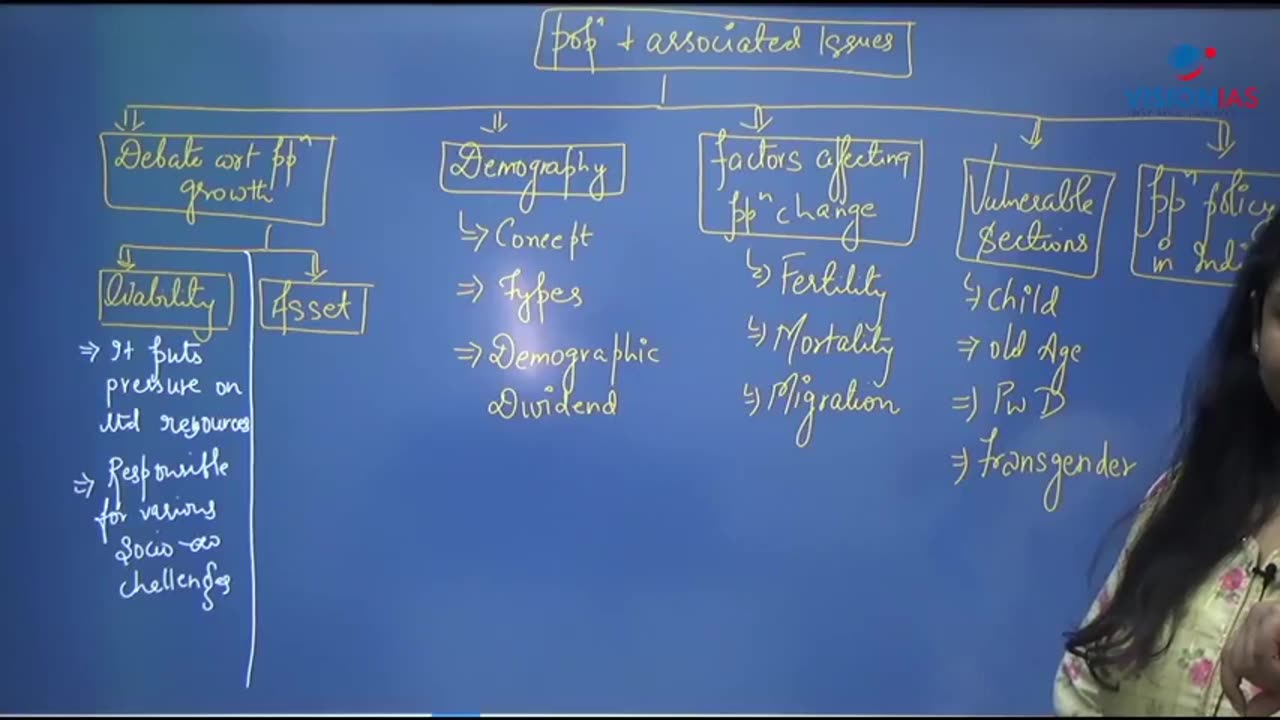 popⁿ & associated Issues
VISIONIAS
Debate wrt ppⁿ
growth
Liability
⇒ It puts
pressure on
ltd resources
⇒ Responsible
for various
Socio-eco
challenges
Asset
Demography
↳ Concept
⇒ Types
⇒ Demographic
Dividend
factors affecting
ppⁿ change
↳ Fertility
↳ Mortality
↳ Migration
Vulnerable
Sections
↳ Child
⇒ Old Age
⇒ PwD
⇒ Transgender
ppⁿ policy
in Indi